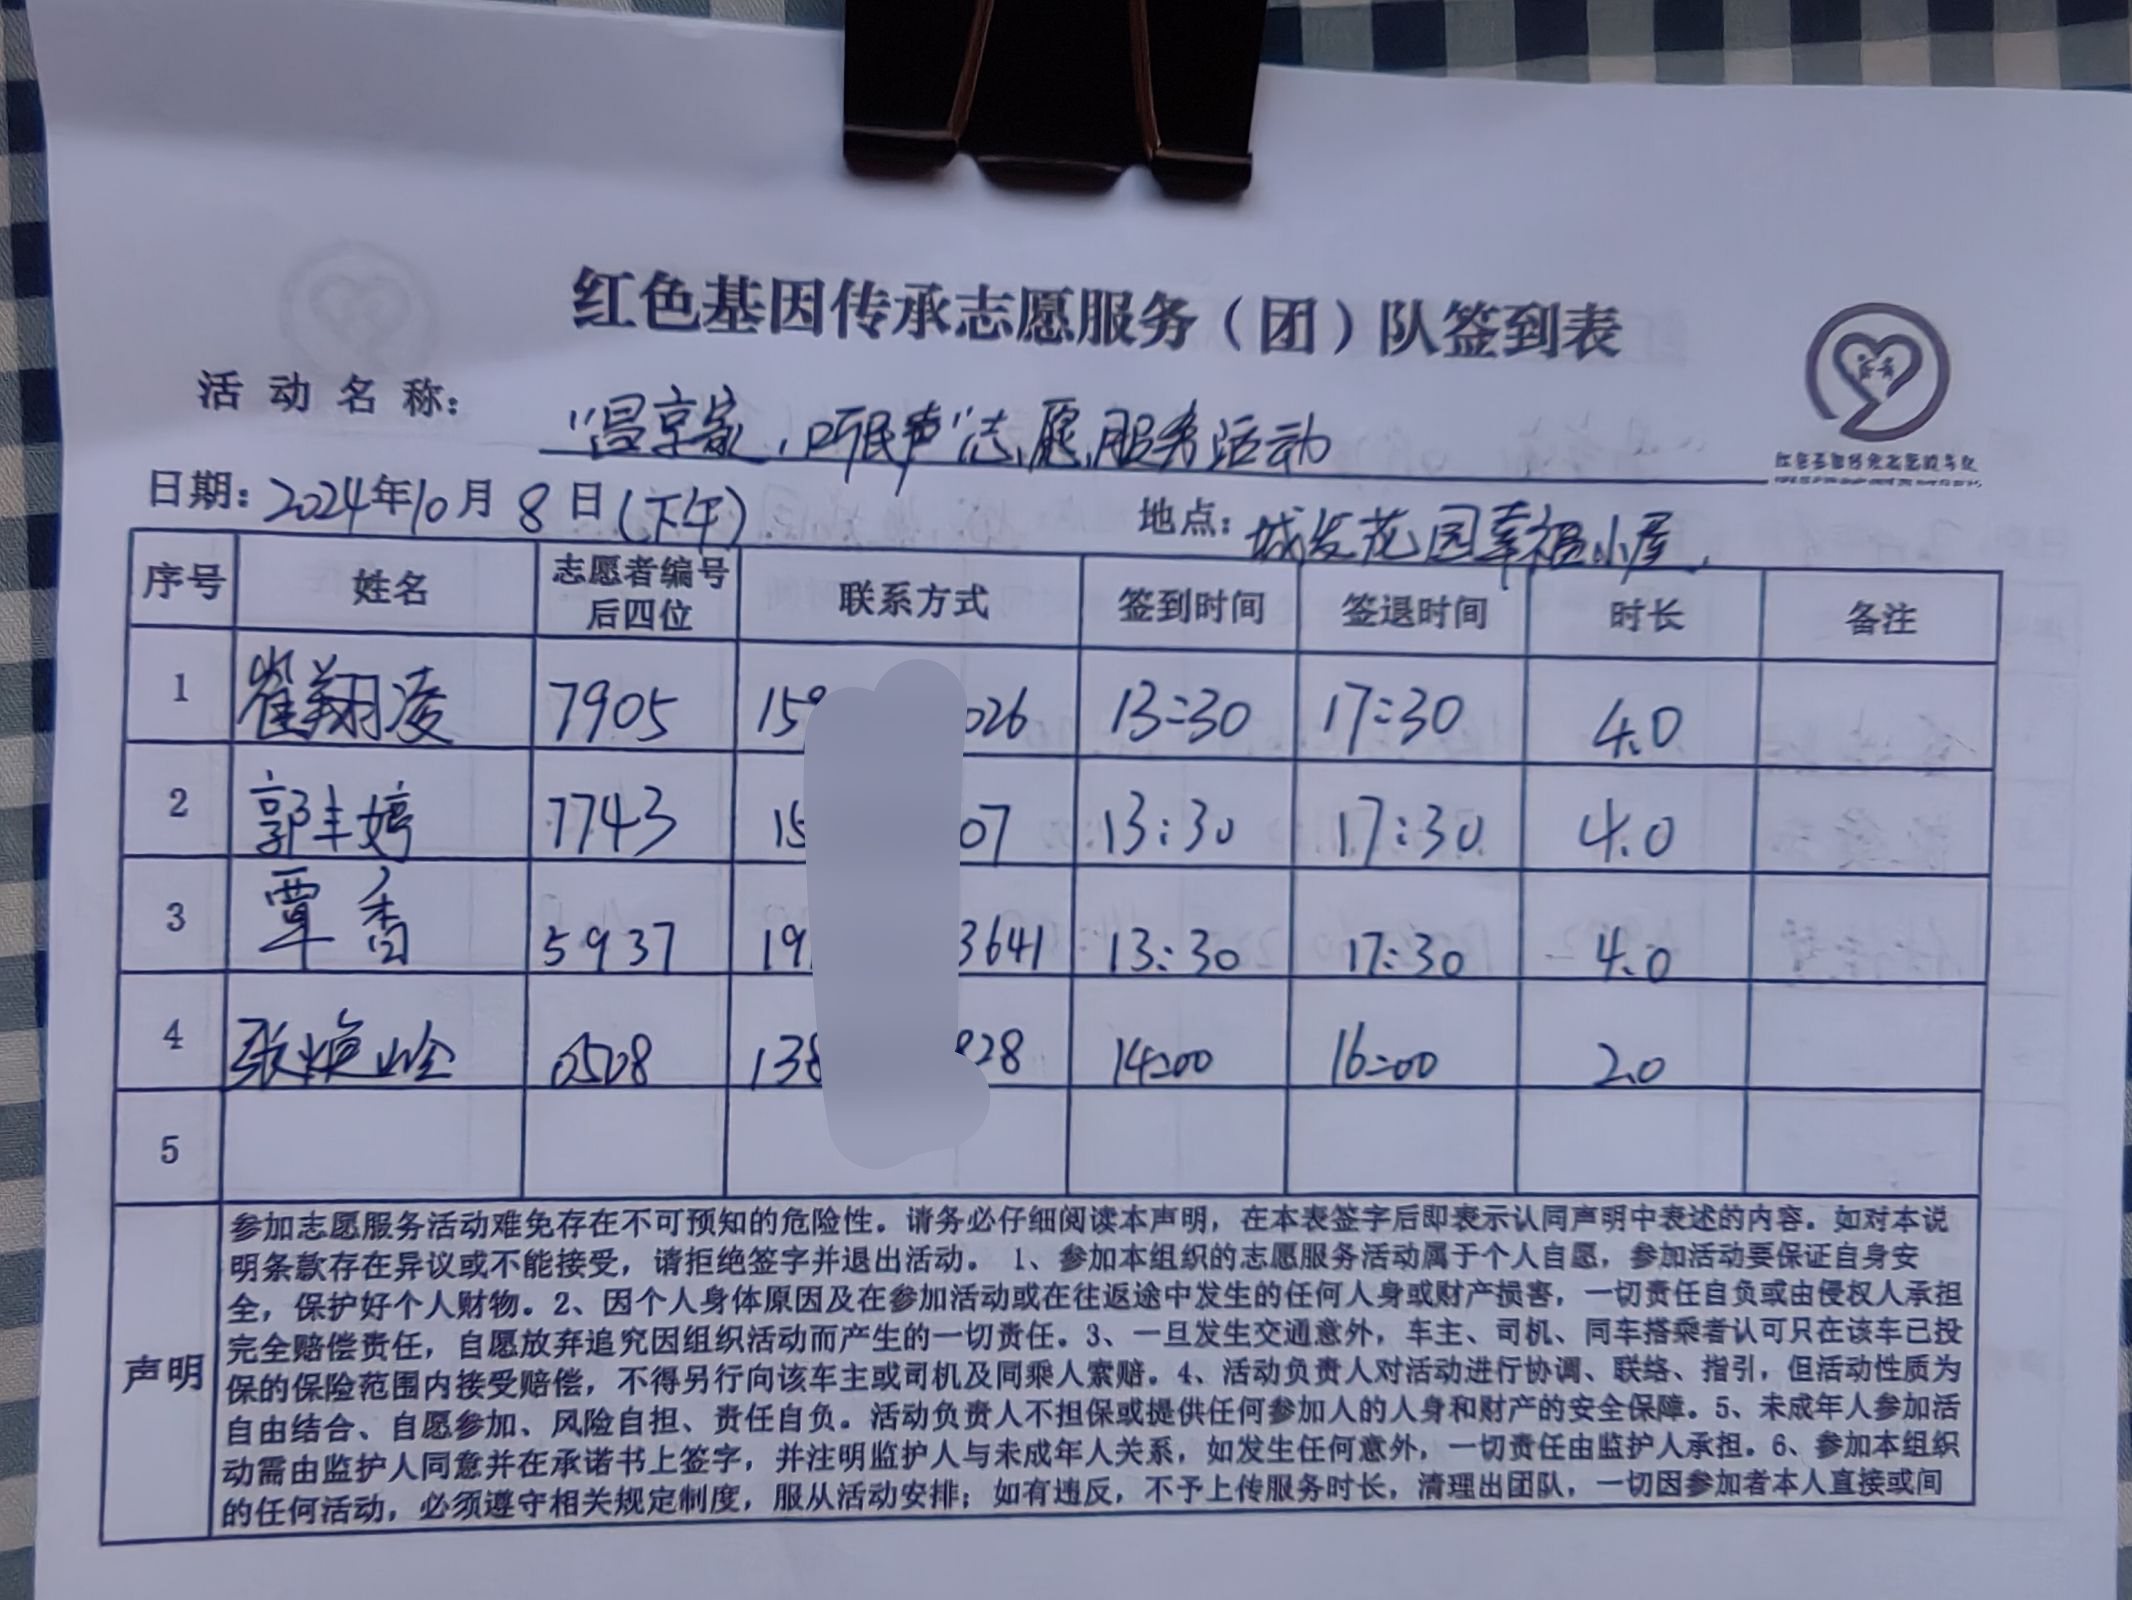 红色基因传承志愿服务（团）队签到表
活动名称： “温享家，听民声”志愿服务活动
日期：2024年10月8日（下午） 地点：城发花园幸福小屋
序号 姓名 志愿者编号后四位 联系方式 签到时间 签退时间 时长 备注
1 崔翔凌 7905 159 026 13:30 17:30 4.0
2 郭丰婷 7743 15 07 13:30 17:30 4.0
3 覃香 5937 19 3641 13:30 17:30 4.0
4 张焕岭 0508 138 28 14:00 16:00 2.0
5
声明
参加志愿服务活动难免存在不可预知的危险性。请务必仔细阅读本声明，在本表签字后即表示认同声明中表述的内容。如对本说
明条款存在异议或不能接受，请拒绝签字并退出活动。 1、参加本组织的志愿服务活动属于个人自愿，参加活动要保证自身安
全，保护好个人财物。2、因个人身体原因及在参加活动或在往返途中发生的任何人身或财产损害，一切责任自负或由侵权人承担
完全赔偿责任，自愿放弃追究因组织活动而产生的一切责任。3、一旦发生交通意外，车主、司机、同车搭乘者认可只在该车已投
保的保险范围内接受赔偿，不得另行向该车主或司机及同乘人索赔。4、活动负责人对活动进行协调、联络、指引，但活动性质为
自由结合、自愿参加、风险自担、责任自负。活动负责人不担保或提供任何参加人的人身和财产的安全保障。5、未成年人参加活
动需由监护人同意并在承诺书上签字，并注明监护人与未成年人关系，如发生任何意外，一切责任由监护人承担。6、参加本组织
的任何活动，必须遵守相关规定制度，服从活动安排；如有违反，不予上传服务时长，清理出团队，一切因参加者本人直接或间